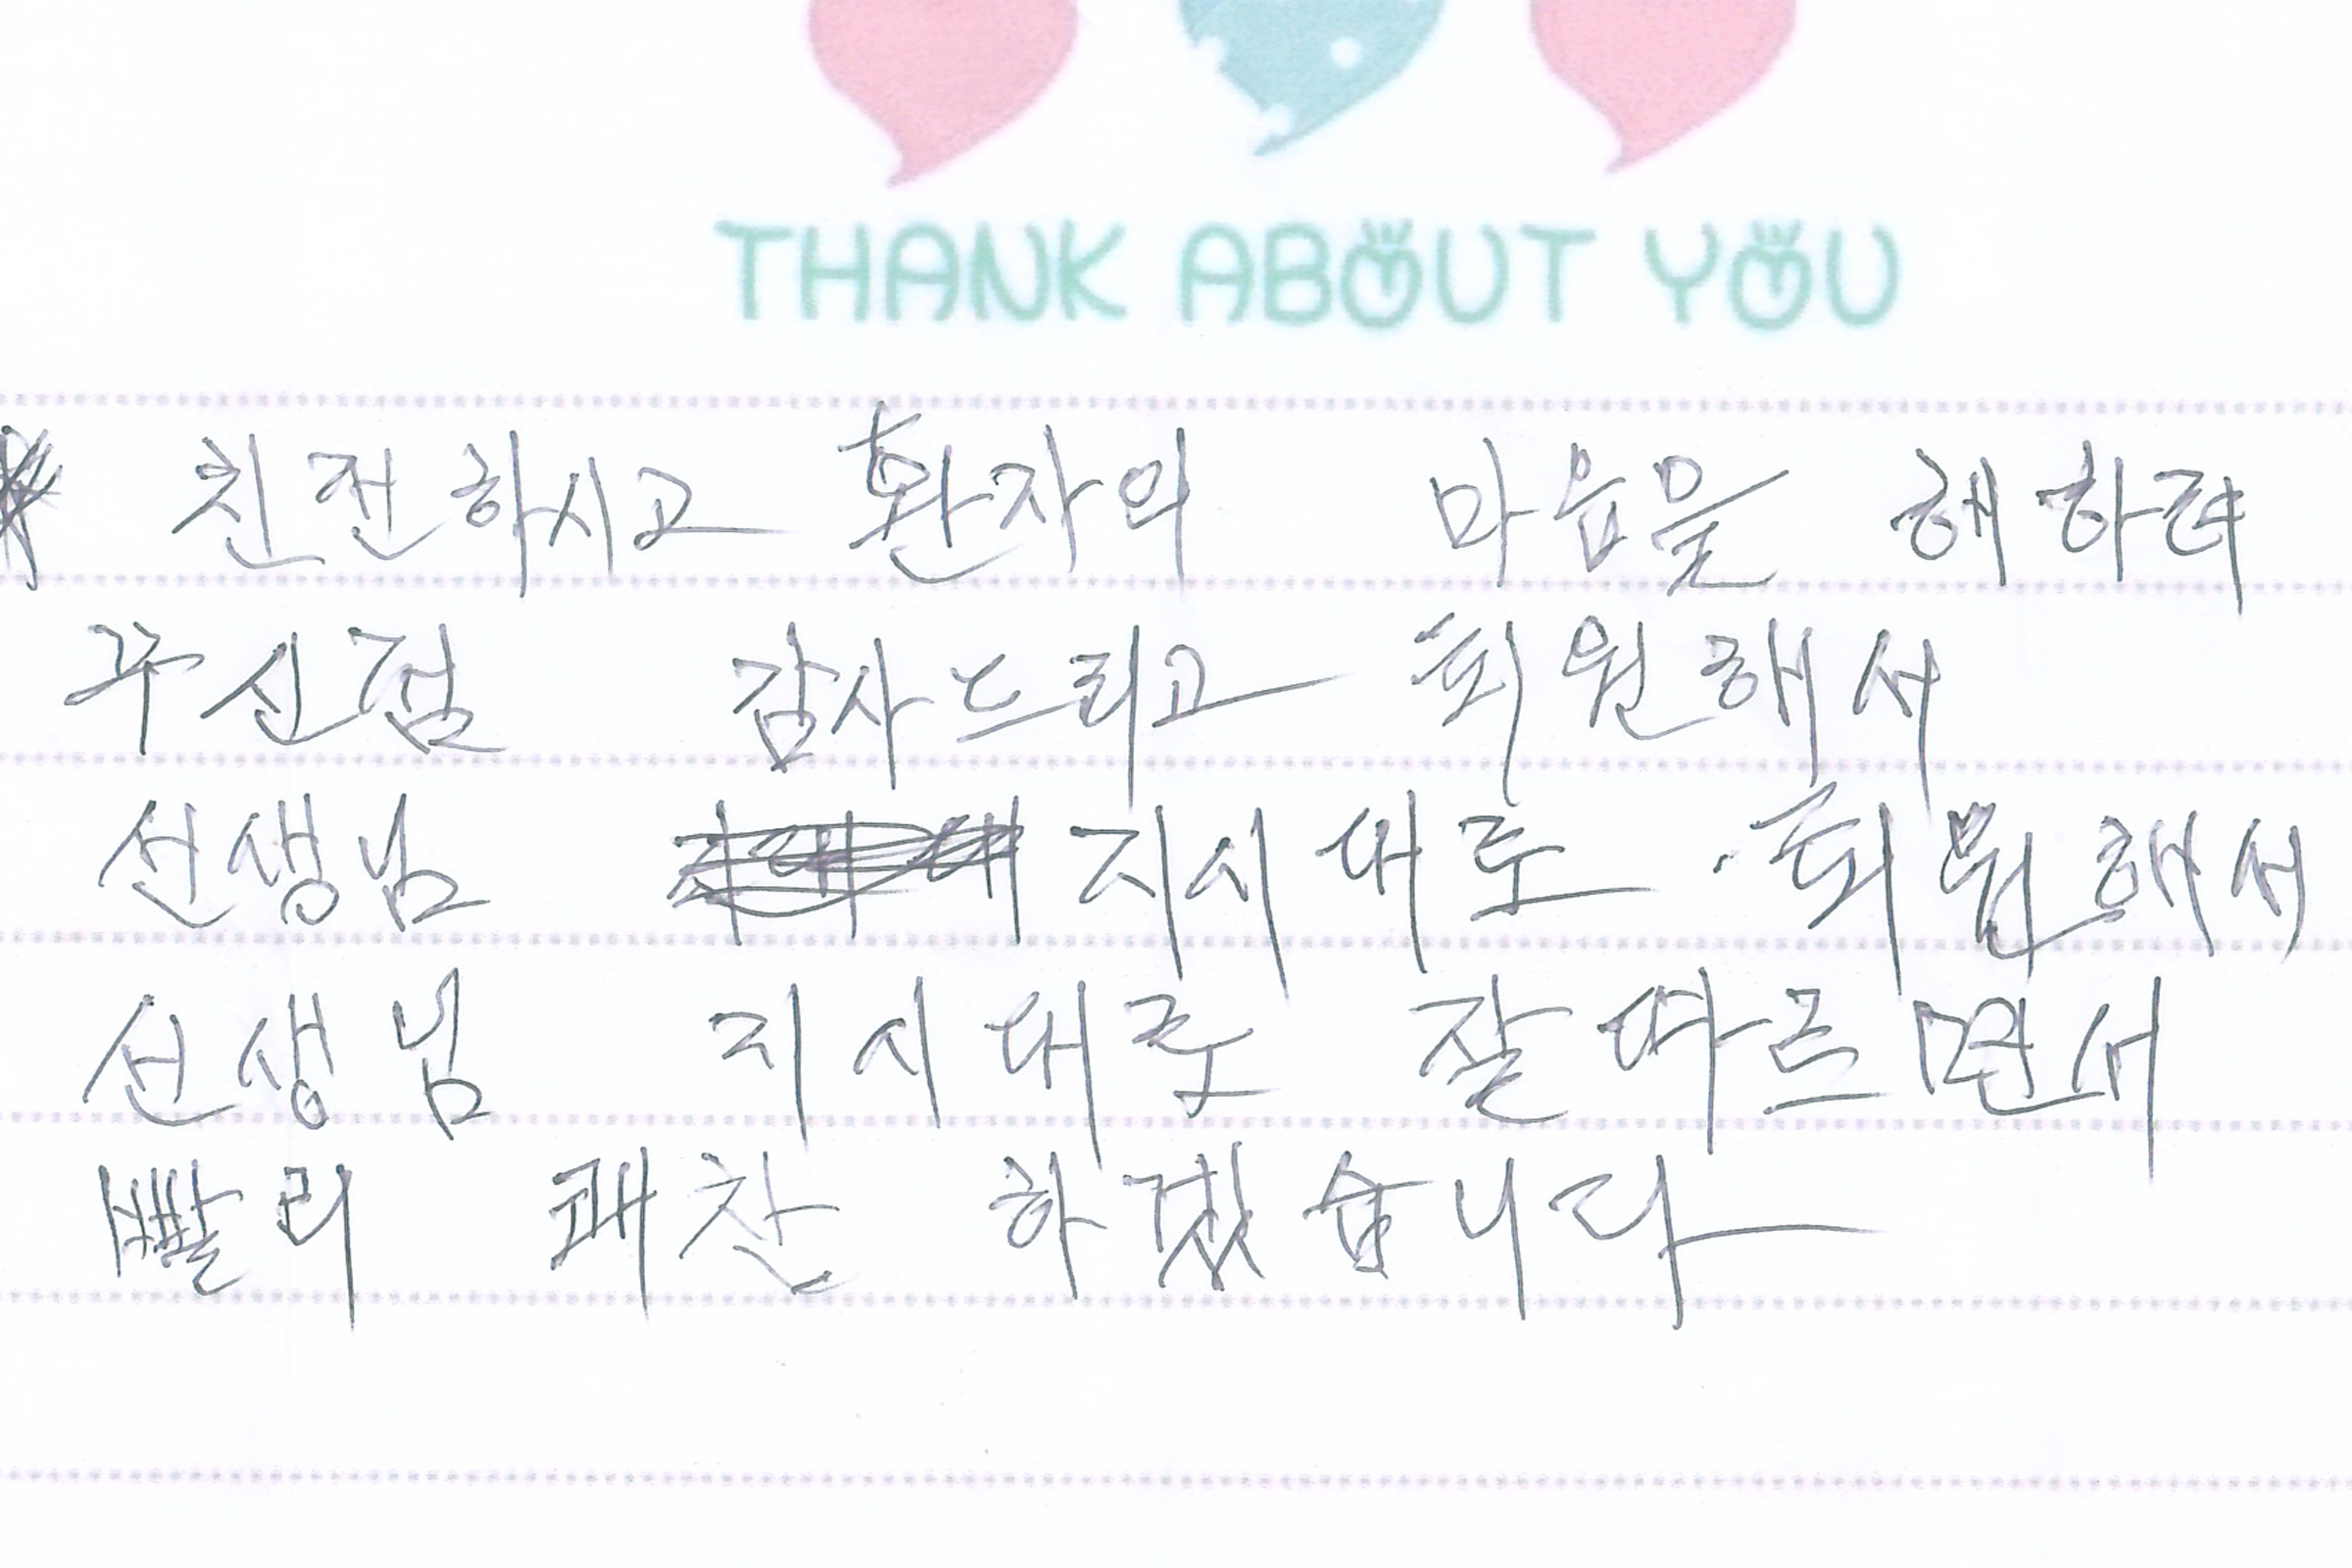 THANK ABOUT YOU
친전하시고 환자의 마음을 해하려
꾸신점 감사드리고 퇴원해서
선생님 지시대로 퇴원해서
선생님 지시대로 잘 따르면서
빨리 쾌찬 하겠습니다